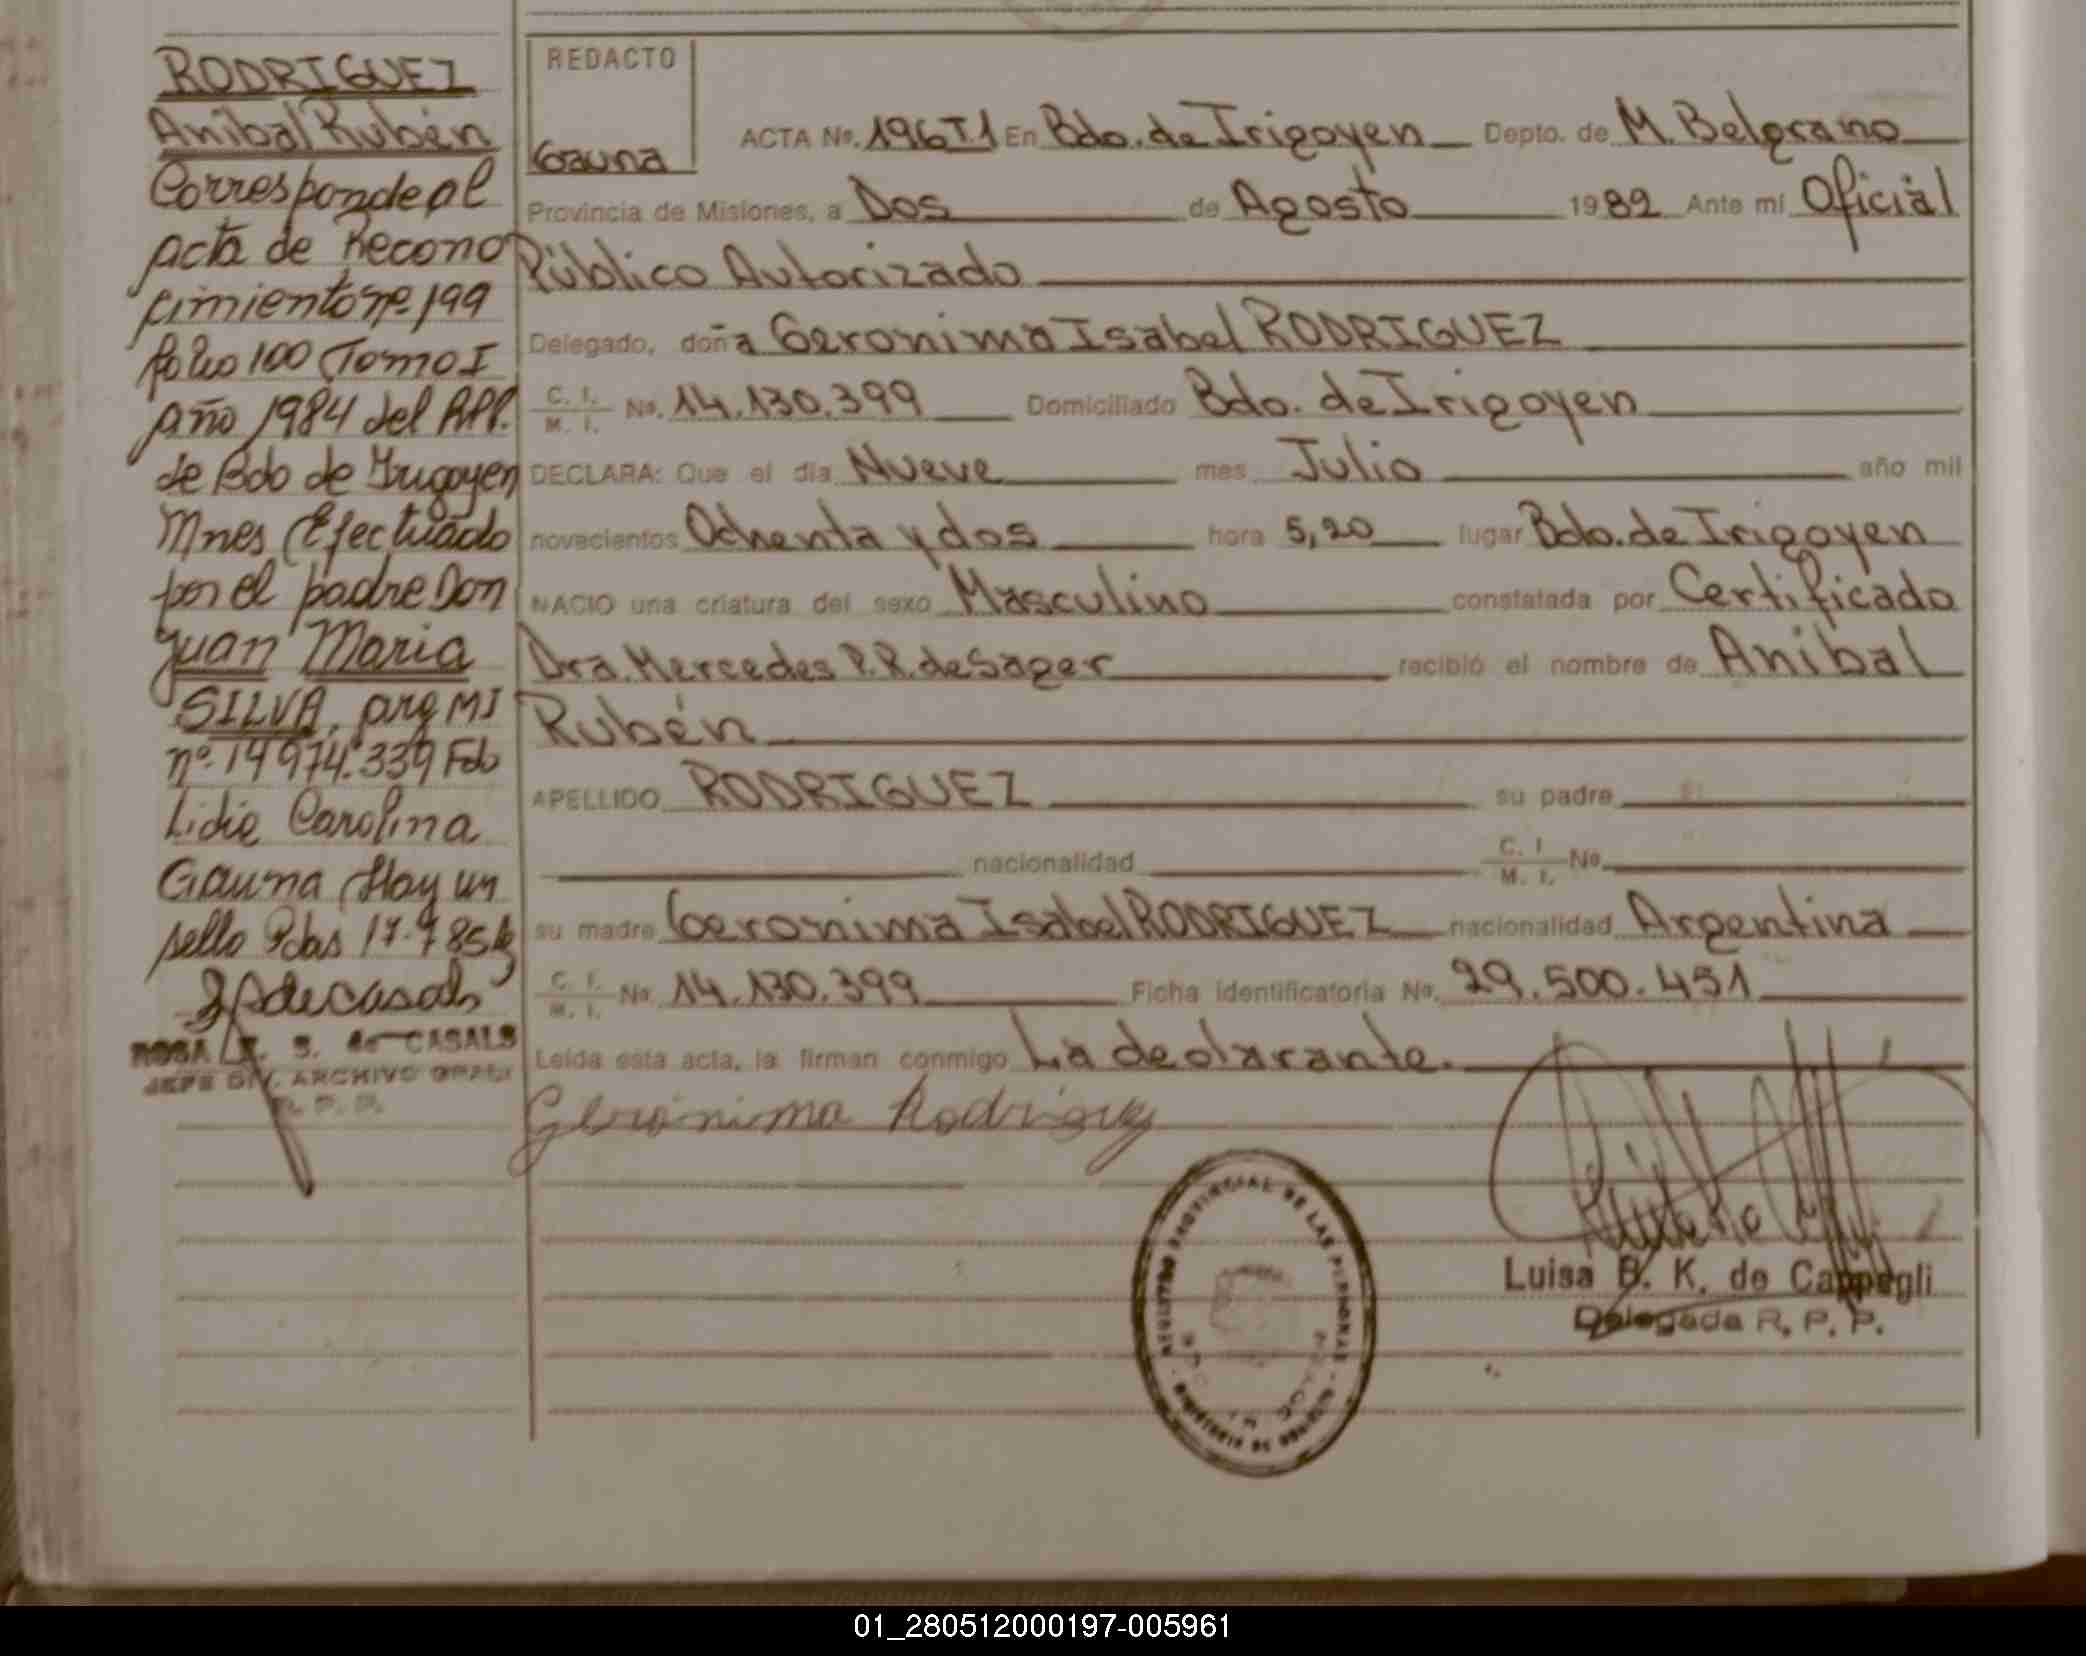 RODRIGUEZ
Anibal Rubén
Corresponde al
acta de Recono
cimiento nº 199
folio 100 Tomo I
año 1984 del RPP.
de Bdo de Irigoyen
Mnes (Efectuado
por el padre Don
Juan Maria
SILVA, arg MI
nº. 14 974.339 Fdo
Lidie Carolina
Gauna (Hay un
sello Pdas 17.9 85
ROSA S. de CASALS
JEFE DIV. ARCHIVO GRAL.
R. P. P.
REDACTO
Gauna
ACTA No. 196 T.1 En Bdo. de Irigoyen Depto. de M. Belgrano
Provincia de Misiones, a Dos de Agosto 1982 Ante mí Oficial
Público Autorizado
Delegado, doña Geronima Isabel RODRIGUEZ
C. I. M. I. No. 14.130.399 Domiciliado Bdo. de Irigoyen
DECLARA: Que el día Nueve mes Julio año mil
novecientos Ochenta y dos hora 5,20 lugar Bdo. de Irigoyen
NACIO una criatura del sexo Masculino constatada por Certificado
Dra. Mercedes P. R. de Sager recibió el nombre de Anibal
Rubén
APELLIDO RODRIGUEZ su padre
nacionalidad C. I. M. I. No.
su madre Geronima Isabel RODRIGUEZ nacionalidad Argentina
C. I. M. I. No 14.130.399 Ficha identificatoria No. 29.500.451
Leída esta acta, la firman conmigo La declarante.
Geronima Rodriguez
REGISTRO PROVINCIAL DE LAS PERSONAS
Luisa B. K. de Cappagli
Delegada R. P. P.
01_280512000197-005961